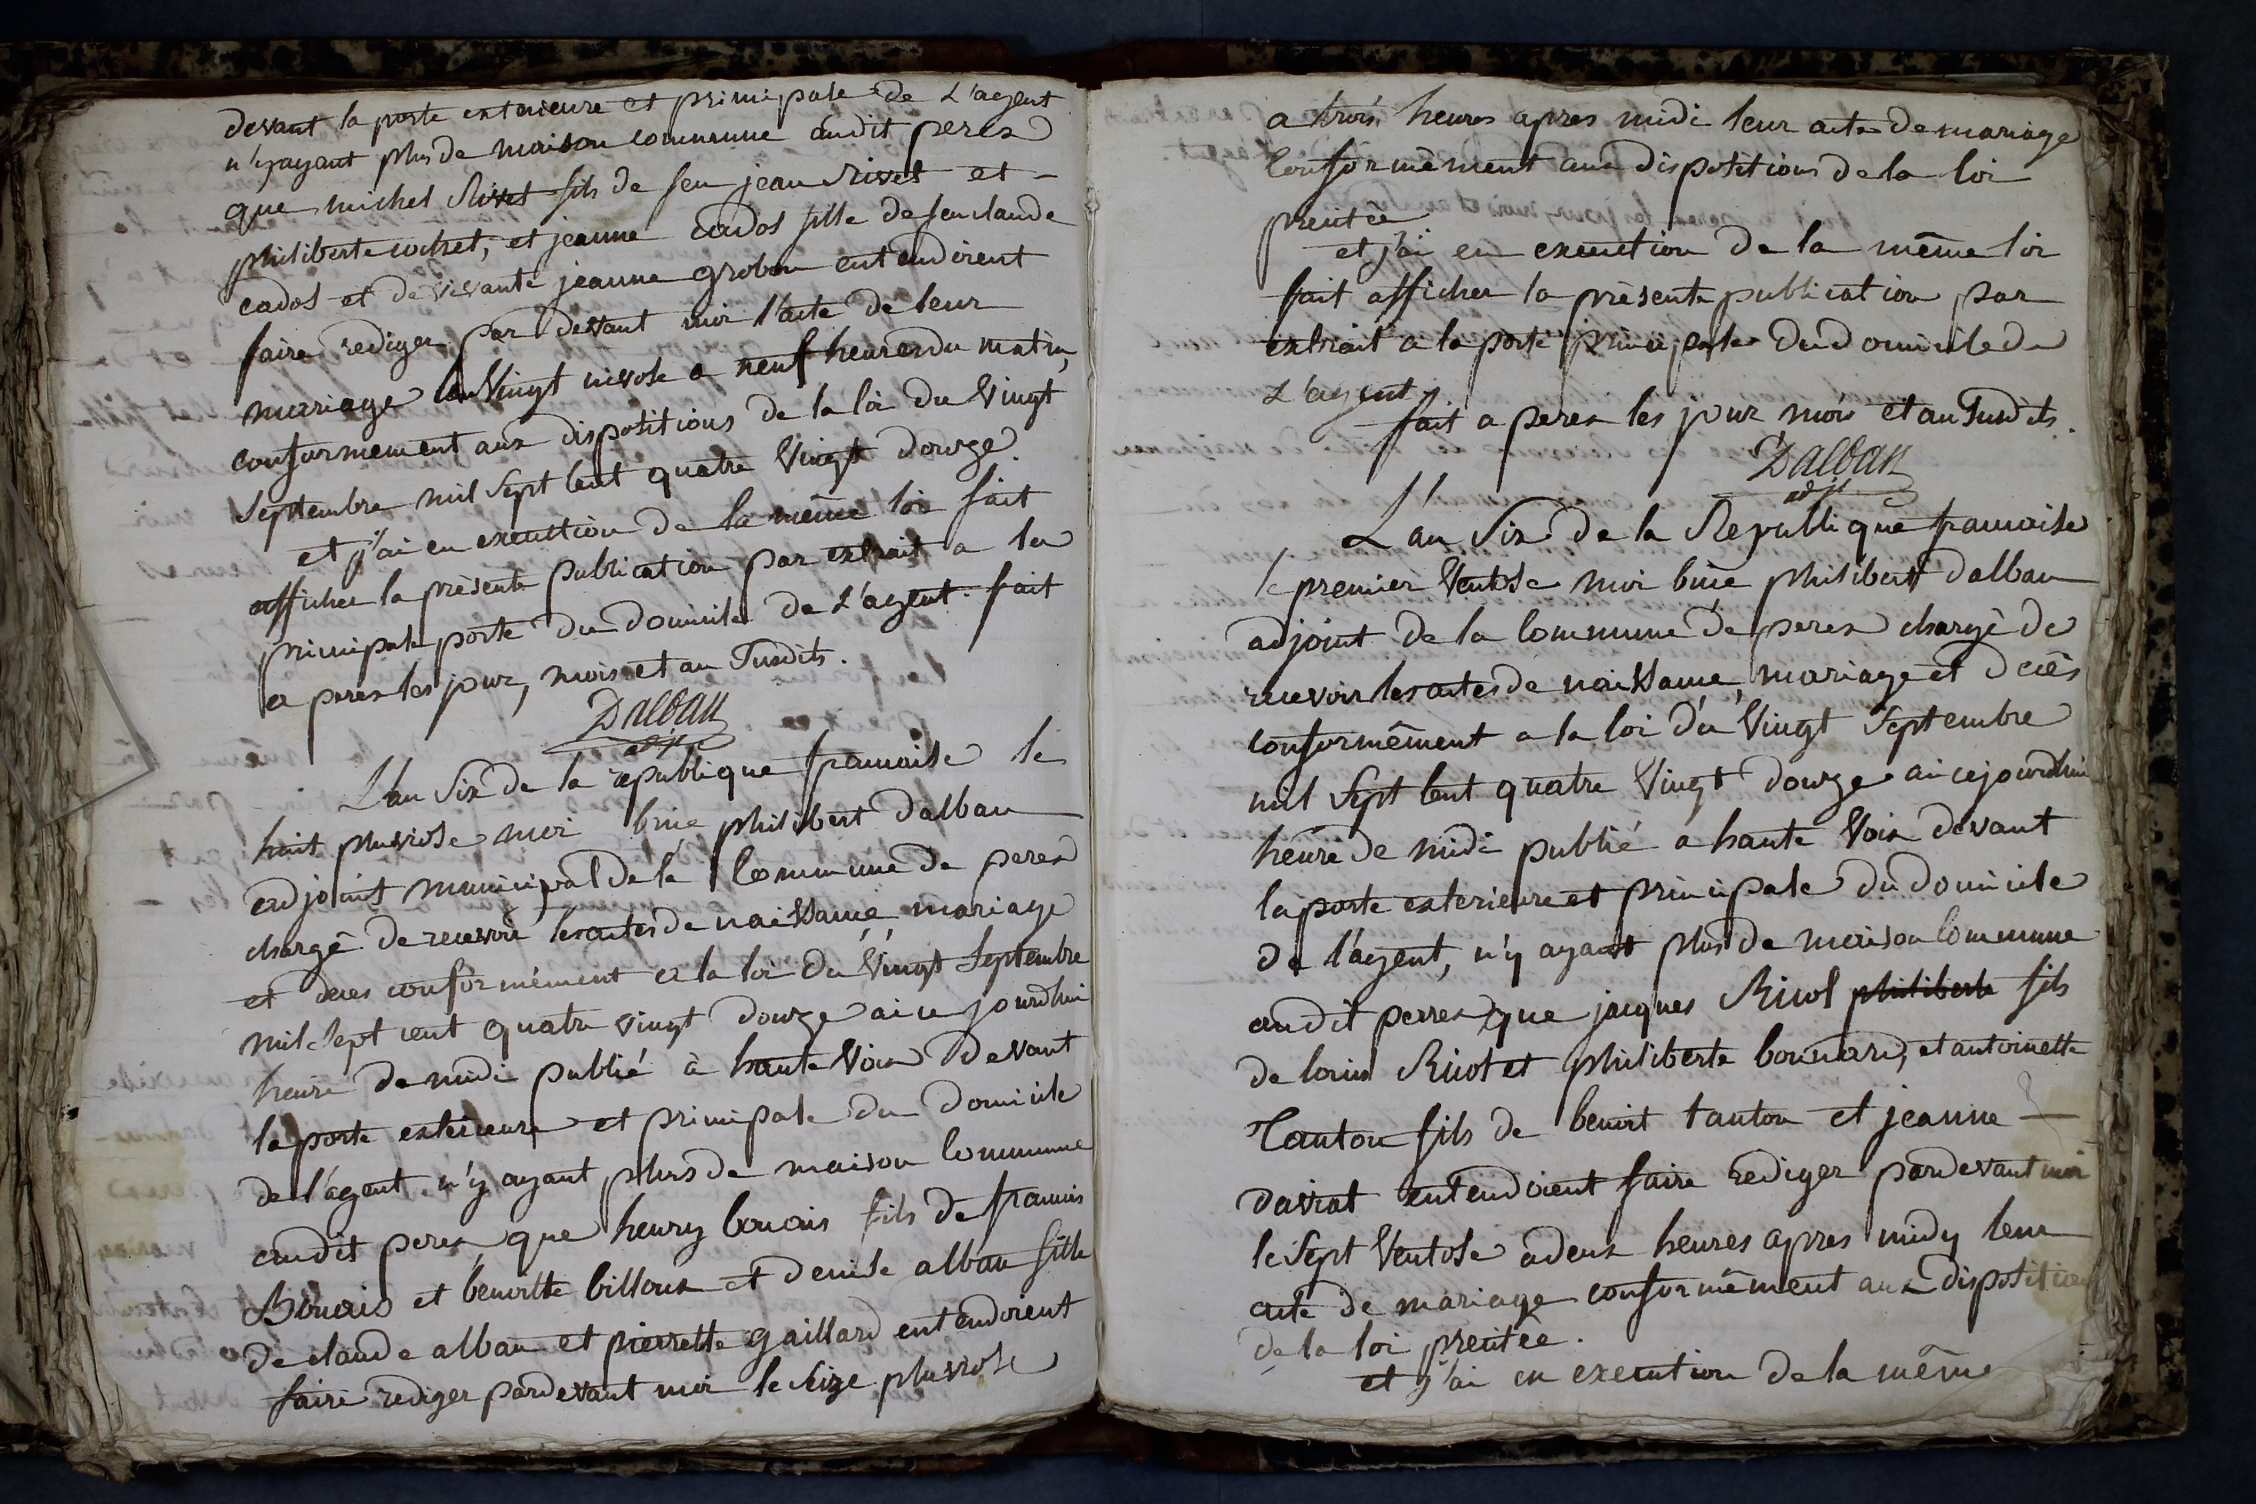 devant la porte exterieure et principale de L'agent
n'yayant plus de maison commune audit perex
que michel Rivet fils de feu jean Rivet et
philiberte cochet, et jeanne cados fille de feu claude
cados et de vivante jeanne grobon entendoient
faire rediger par devant moi l'acte de leur
mariage le Vingt nivose a neuf heures du matin,
conformement aux dispositions de la loi du Vingt
Septembre mil Sept Cent quatre Vingt douze.
et j'ai en execution de la même loi fait
afficher la prèsente publication par extrait a la
principale porte du domicile de L'agent. fait
a perex les jour, mois et an Susdits.
Dalban
adjt
L'an Six de la republique francoise le
huit pluviose moi bine philibert dalban
adjoint municipal de la Commune de perex
chargé de recevoir les actes de naissance, mariage
et deces conformément a la loi du Vingt Septembre
mil Sept cent quatre vingt douze ai ce jourdhui
heure de midi publié à haute Voix devant
la porte exterieure et principale du domicile
de l'agent n'y ayant plus de maison Commune
audit perex que henry bouais fils de francois
Bouais et benoitte billoux et denise alban fille
de claude alban et pierrette gaillard entendoient
faire rediger pardevant moi le Seize pluviose
a trois heures apres midi leur acte de mariage
Conformément aux dispositions de la loi
précitée
et j'ai en execution de la même loi
fait afficher la prèsente publication par
extrait a la porte principale du domicile de
L'agent
fait a perex les jour, mois et an Susdits.
Dalban
adjt
L'an Six de la Republique francoise
le premier Ventose moi bine philibert dalban
adjoint de la Commune de perex chargé de
recevoir les actes de naissance, mariage et decès
conformément a la loi du Vingt Septembre
mil Sept Cent quatre Vingt douze ai cejourdhui
heure de midi publié a haute Voix devant
la porte exterieure et principale du domicile
de l'agent, n'y ayant plus de maison Commune
audit perrex que jacques Ricol philiberte fils
de louis Ricol et philiberte bonnard, et antoinette
Tanton fils de benoit tanton et jeanne
daviat entendoient faire rediger pardevant moi
le Sept Ventose a deux heures apres midy leur
acte de mariage conformément aux dispositions
de la loi précitée.
et j'ai en execution de la même